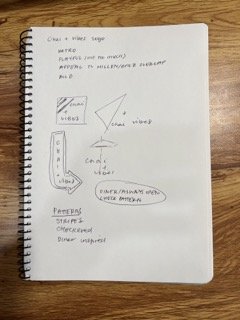 Chai + vibes logo
RETRO
PLAYFUL (not too much)
APPEAL TO MILLEN/GENZ OVERLAP
BOLD
chai
+
VIBES
+
chai vibes
CHAI
+
VIBES
Chai
+
vibes
DINER/ALWAYS OPEN
CHECK PATTERN
PATTERNS
STRIPES
CHECKERED
Diner inspired